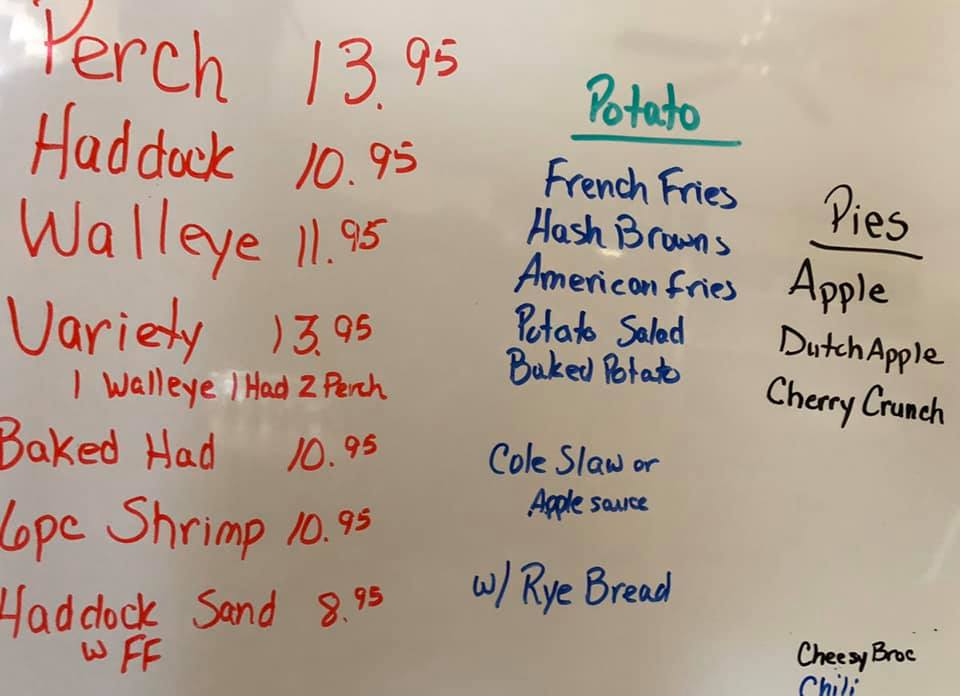 Perch 13.95
Haddock 10.95
Walleye 11.95
Variety 13.95
1 Walleye 1 Had 2 Perch
Baked Had 10.95
6pc Shrimp 10.95
Haddock Sand 8.95
w FF
Potato
French Fries
Hash Browns
American Fries
Potato Salad
Baked Potato
Cole Slaw or
Apple sauce
w/ Rye Bread
Pies
Apple
Dutch Apple
Cherry Crunch
Cheesy Broc
Chili